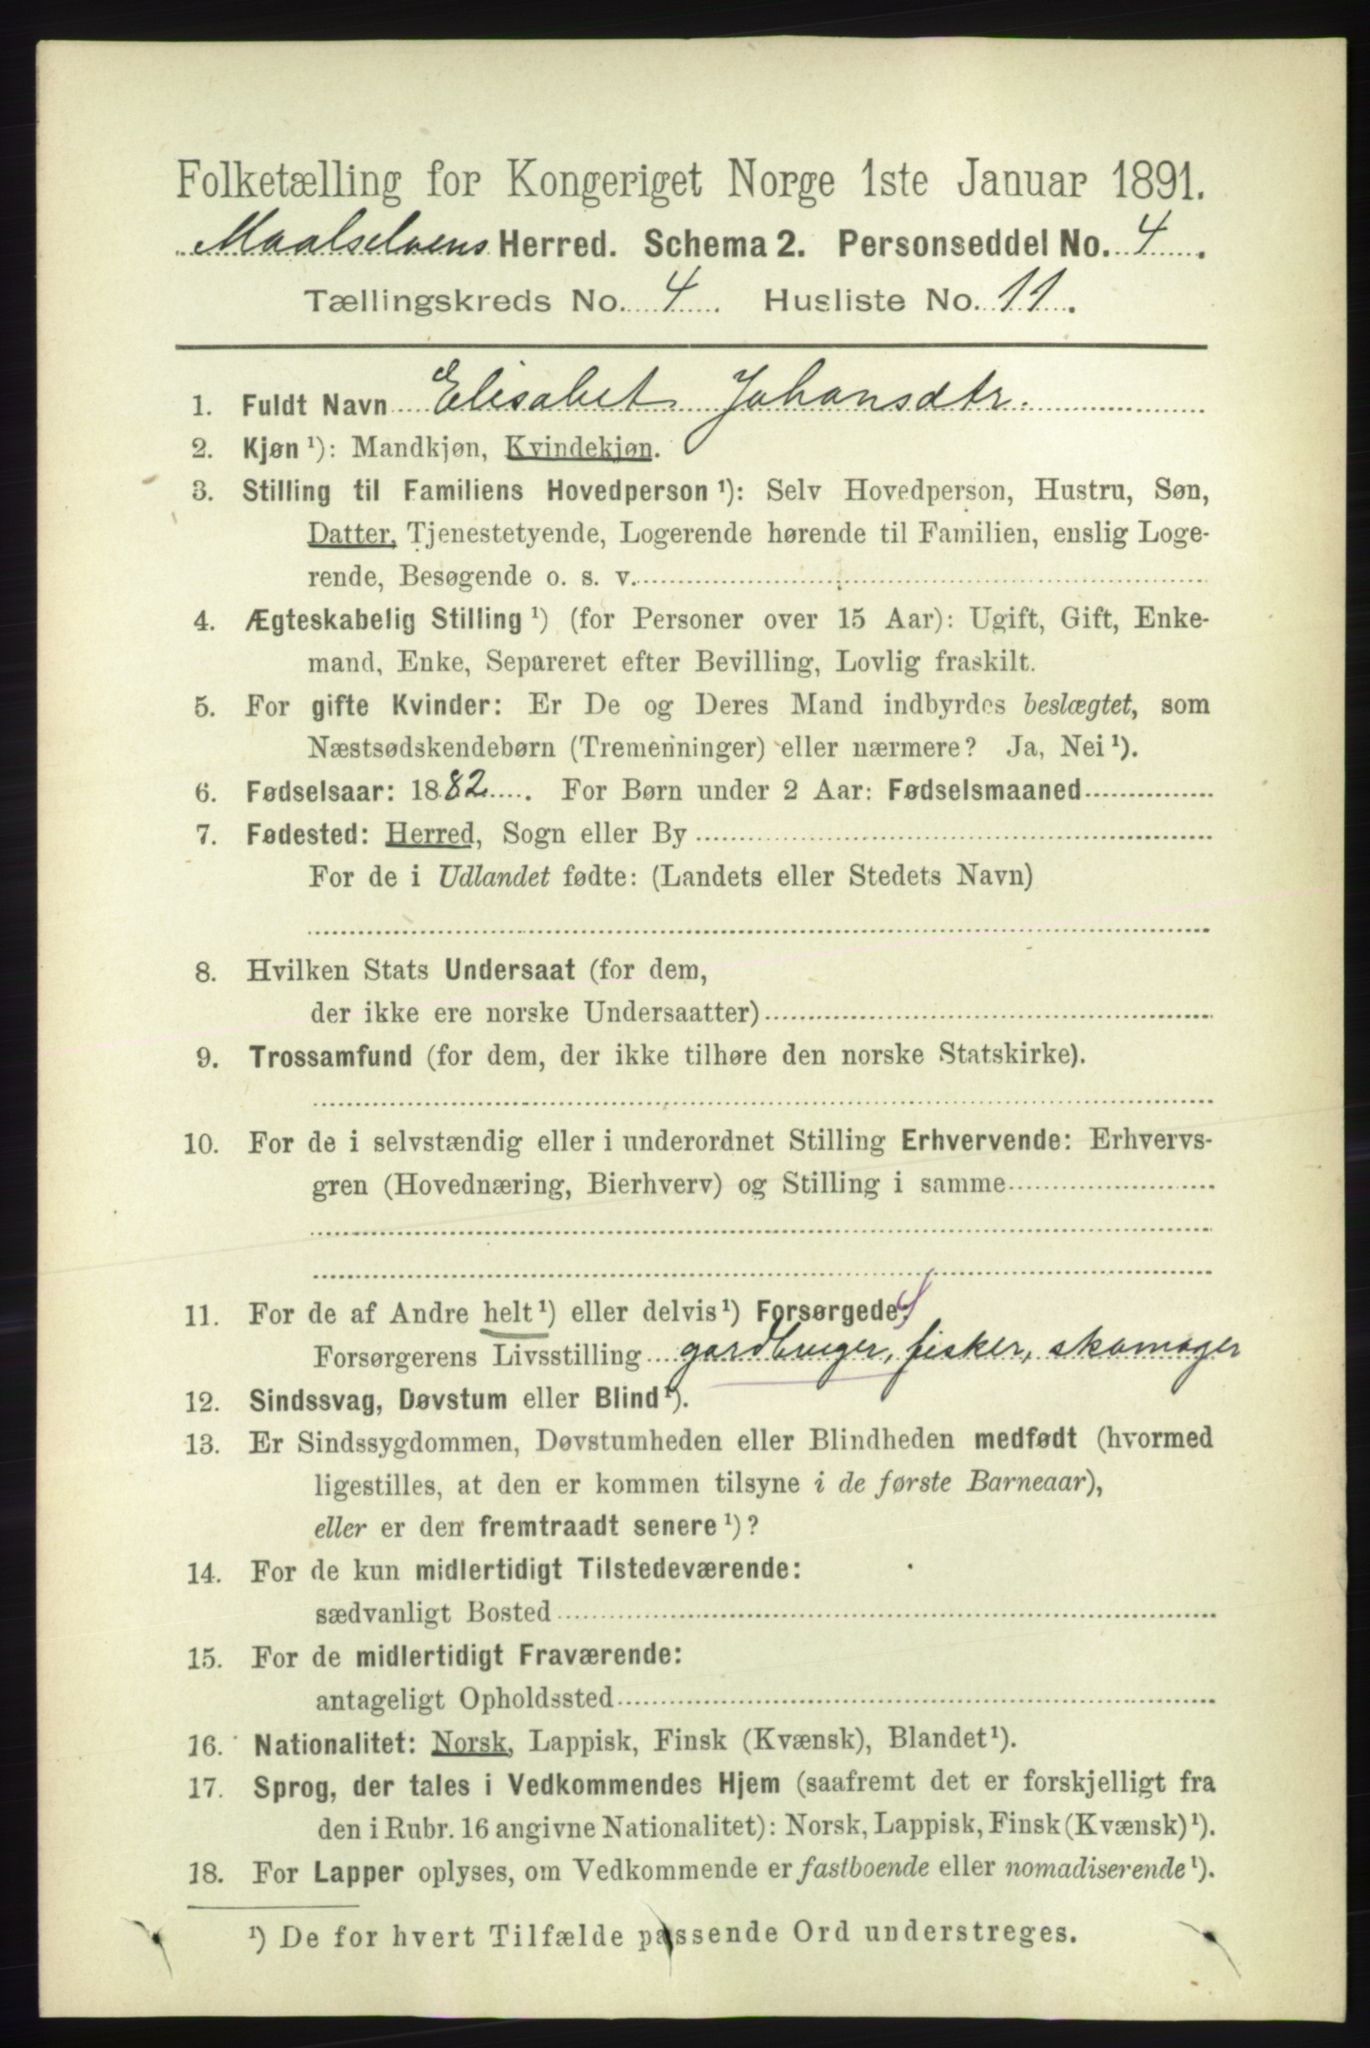 Folketælling for Kongeriget Norge 1ste Januar 1891.
Maalselvens Herred. Schema 2. Personseddel No. 4.
Tællingskreds No. 4. Husliste No. 11.
1. Fuldt Navn Elisabet Johansdtr.
2. Kjøn ¹): Mandkjøn, Kvindekjøn.
3. Stilling til Familiens Hovedperson ¹): Selv Hovedperson, Hustru, Søn,
Datter, Tjenestetyende, Logerende hørende til Familien, enslig Loge-
rende, Besøgende o. s. v.
4. Ægteskabelig Stilling ¹) (for Personer over 15 Aar): Ugift, Gift, Enke-
mand, Enke, Separeret efter Bevilling, Lovlig fraskilt.
5. For gifte Kvinder: Er De og Deres Mand indbyrdes beslægtet, som
Næstsødskendebørn (Tremenninger) eller nærmere? Ja, Nei ¹).
6. Fødselsaar: 1882. For Børn under 2 Aar: Fødselsmaaned
7. Fødested: Herred, Sogn eller By
For de i Udlandet fødte: (Landets eller Stedets Navn)
8. Hvilken Stats Undersaat (for dem,
der ikke ere norske Undersaatter)
9. Trossamfund (for dem, der ikke tilhøre den norske Statskirke).
10. For de i selvstændig eller i underordnet Stilling Erhvervende: Erhvervs-
gren (Hovednæring, Bierhverv) og Stilling i samme
11. For de af Andre helt ¹) eller delvis ¹) Forsørgede:
Forsørgerens Livsstilling gardbruger, fisker, skomager
12. Sindssvag, Døvstum eller Blind ¹).
13. Er Sindssygdommen, Døvstumheden eller Blindheden medfødt (hvormed
ligestilles, at den er kommen tilsyne i de første Barneaar),
eller er den fremtraadt senere ¹)?
14. For de kun midlertidigt Tilstedeværende:
sædvanligt Bosted
15. For de midlertidigt Fraværende:
antageligt Opholdssted
16. Nationalitet: Norsk, Lappisk, Finsk (Kvænsk), Blandet ¹).
17. Sprog, der tales i Vedkommendes Hjem (saafremt det er forskjelligt fra
den i Rubr. 16 angivne Nationalitet): Norsk, Lappisk, Finsk (Kvænsk) ¹).
18. For Lapper oplyses, om Vedkommende er fastboende eller nomadiserende ¹).
¹) De for hvert Tilfælde passende Ord understreges.